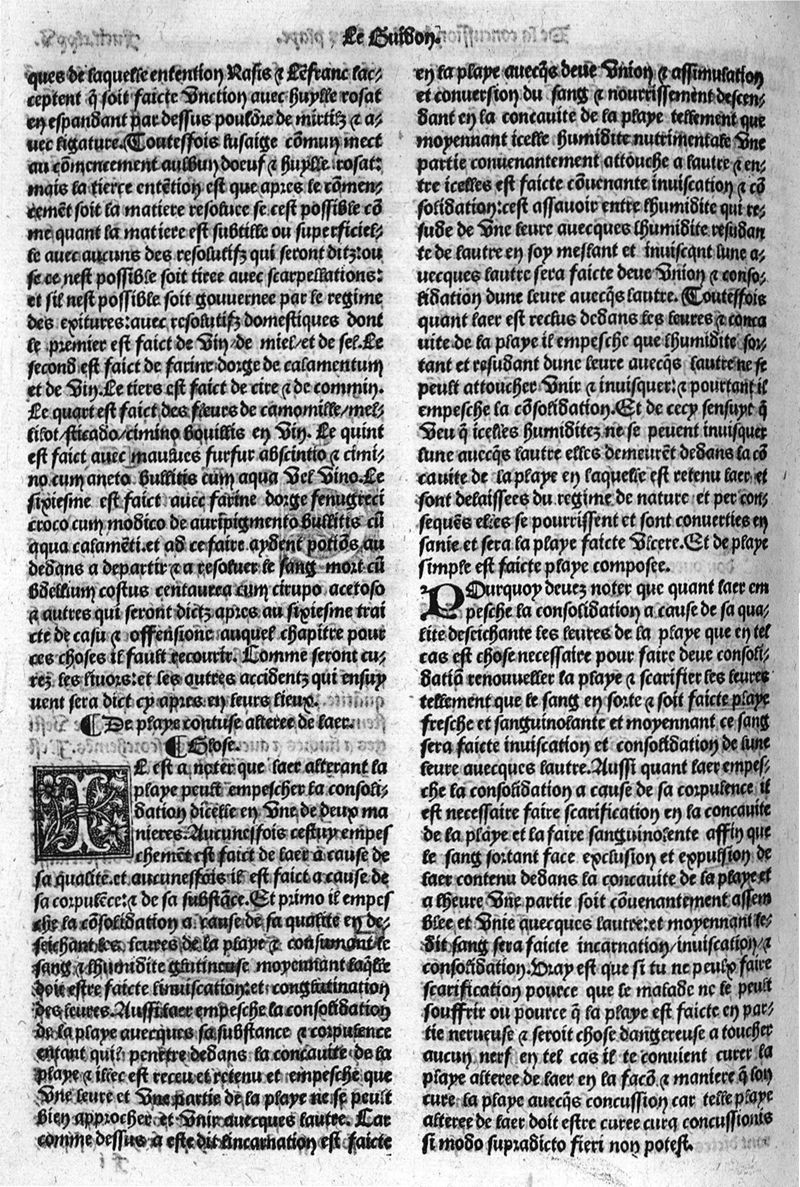 Le Guidon.
ques de laquelle entention Rasis & Lẽfranc lac-
ceptent q̃ soit faicte Vnction avec huylle rosat
en espandant par dessus pouldre de mirtilz & a-
uec ligature. Toutesfois lusaige cõmun mect
au cõmencement aulbun doeuf & huylle rosat:
mais la tierce entẽtion est que apres le cõmen-
cemẽt soit la matiere resoluce se cest possible cõ
me quant la matiere est subtille ou superficiel-
le avec aucuns des resolutifz qui seront ditz: ou
se ce nest possible soit tiree avec scarpellations:
et sil nest possible soit gouvernee par le regime
des exitures: avec resolutifz domestiques dont
le premier est faict de Vin/de miel/et de sel. Le
second est faict de farine dorge de calamentum
et de Vin. Le tiers est faict de cire & de commin.
Le quart est faict des fleurs de camomille/mel-
lilot/sticado/cimino bouillis en Vin. Le quint
est faict avec mauues furfur abscintio & cimi-
no cum aneto bullitis cum aqua Vel Vino. Le
sixiesme est faict avec farine dorge fenugreci
croco cum modico de auripigmento bullitis cũ
aqua calamẽti. et ad ce faire aydent potiõs au
dedans a departir & a resoluer le sang mort cũ
bdellium costus centaurea cum cirupo acetoso
& autres qui seront dictz apres au sixiesme trai
cte de casu & offensione auquel chapitre pour
ces choses il fault recourir. Comme seront cu-
rez les liuors: et les autres accidentz qui ensuy
uent sera dict cy apres en leurs lieux.
¶ De playe contuse alteree de laer.
¶ Glose.
IL est a noter que laer alterant la
playe peult empescher la consoli-
dation dicelle en Vne de deux ma
nieres. Aucunesfois cestuy empes
chemẽt est faict de laer a cause de
sa qualite. et aucunesfois il est faict a cause de
sa corpulẽce: & de sa substãce. Et primo il empes
che la cõsolidation a cause de sa qualite en de-
seichant les leures de la playe & consumant le
sang & lhumidite glutineuse moyennant laq̃lle
doit estre faicte linuiscation: et conglutination
des leures. Aussi laer empesche la consolidation
de la playe auecques sa substance & corpulence
entant quil penetre dedans la concauite de la
playe & illec est receu et retenu et empesche que
Vne leure et Vne partie de la playe ne se peult
bien approcher et Vnir auecques lautre. Car
comme dessus a este dit lincarnation est faicte
en la playe auecq̃s deue Vnion & assimulation
et conuersion du sang & nourrissement descen-
dant en la concauite de la playe tellement que
moyennant icelle humidite nutrimentale Vne
partie conuenantement attouche a lautre & en-
tre icelles est faicte cõuenante inuiscation & cõ
solidation: cest assauoir entre lhumidite qui re-
sude de Vne leure auecques lhumidite resudan
te de lautre en soy meslant et inuiscant lune a-
uecques lautre sera faicte deue Vnion & conso-
lidation dune leure auecq̃s lautre. Toutesfois
quant laer est reclus dedans les leures & conca
uite de la playe il empesche que lhumidite sor-
tant et resudant dune leure auecq̃s lautre ne se
peult attoucher Vnir & inuisquer: & pourtant il
empesche la cõsolidation. Et de cecy sensuyt q̃
Veu q̃ icelles humiditez ne se peuent inuisquer
lune auecq̃s lautre elles demeurẽt dedans la cõ
cauite de la playe en laquelle est retenu laer et
sont delaissees du regime de nature et per con-
sequẽs elles se pourrissent et sont conuerties en
sanie et sera la playe faicte Vlcere. Et de playe
simple est faicte playe composee.
POurquoy deuez noter que quant laer em
pesche la consolidation a cause de sa qua-
lite deseichante les leures de la playe que en tel
cas est chose necessaire pour faire deue consoli-
datiõ renouueller la playe & scarifier les leures
tellement que le sang en sorte & soit faicte playe
fresche et sanguinolante et moyennant ce sang
sera faicte inuiscation et consolidation de lune
leure auecques lautre. Aussi quant laer empes-
che la consolidation a cause de sa corpulence il
est necessaire faire scarification en la concauite
de la playe et la faire sanguinolente affin que
le sang sortant face exclusion et expulsion de
laer contenu dedans la concauite de la playe et
a lheure Vne partie soit cõuenantement assem
blee et Vnie auecques lautre: et moyennant le-
dit sang sera faicte incarnation/inuiscation/&
consolidation. Vray est que si tu ne peulx faire
scarification pource que le malade ne le peult
souffrir ou pource q̃ la playe est faicte en par-
tie nerueuse & seroit chose dangereuse a toucher
aucun nerf en tel cas il te conuient curer la
playe alteree de laer en la facõ & maniere q̃ lon
cure la playe auecq̃s concussion car telle playe
alteree de laer doit estre curee cura concussionis
si modo supradicto fieri non potest.